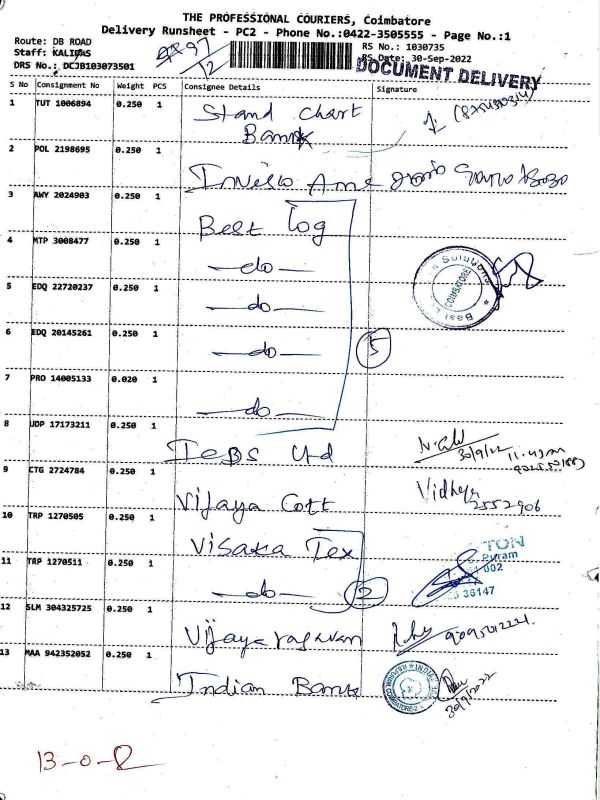 THE PROFESSIONAL COURIERS, Coimbatore
Delivery Runsheet - PC2 - Phone No.:0422-3505555 - Page No.:1
Route: DB ROAD
RS No.: 1030735
Staff: KALIDAS
RS Date: 30-Sep-2022
DRS No.: DCJB103073501
DOCUMENT DELIVERY
S No Consignment No Weight PCS Consignee Details Signature
1 TUT 1006894 0.250 1 Stand Chart Bank
2 POL 2198695 0.250 1
3 AWY 2024903 0.250 1 Best log
4 MTP 3008477 0.250 1 —do—
5 EDQ 22720237 0.250 1 —do—
6 EDQ 20145261 0.250 1 —do— 5
7 PRO 14005133 0.020 1 —do—
8 UDP 17173211 0.250 1 30/9/22
9 CTG 2724784 0.250 1 Vijaya Cott Vidhya 2552906
10 TRP 1270505 0.250 1 Visaka Tex
11 TRP 1270511 0.250 1 —do— 2
TON
Puram
002
36147
12 SLM 304325725 0.250 1 Vijayaragavan
13 MAA 942352052 0.250 1 Indian Bank 30/9/2022
COIMBATORE
13-0-